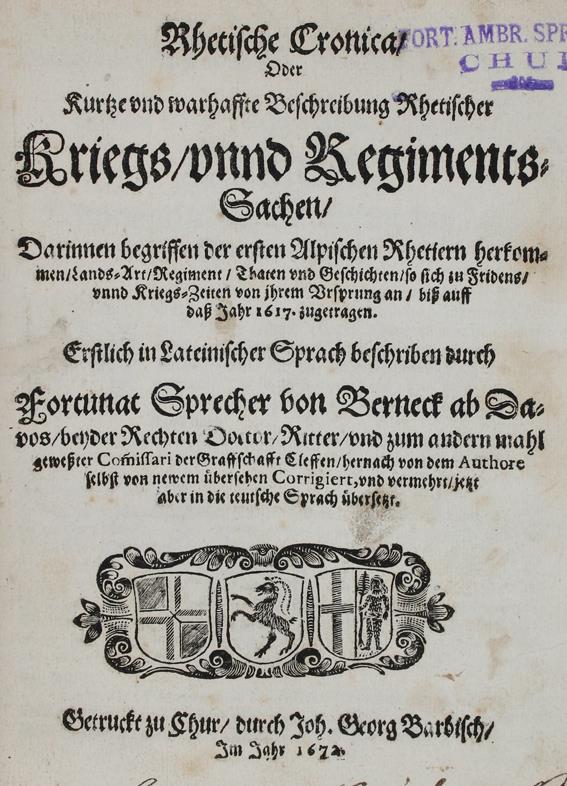 Rhetische Cronica/
Oder
Kurtze vnd warhaffte Beschreibung Rhetischer
Kriegs/vnnd Regiments-
Sachen/
Darinnen begriffen der ersten Alpischen Rhetiern herkom-
men/Lands-Art/Regiment/Thaten vnd Geschichten/so sich zu Fridens/
vnnd Kriegs-Zeiten von jhrem Vrsprung an/ biß auff
daß Jahr 1617. zugetragen.
Erstlich in Lateinischer Sprach beschriben durch
Fortunat Sprecher von Berneck ab Da-
vos/beyder Rechten Doctor/Ritter/vnd zum andern mahl
geweßter Com̃issari der Graffschafft Cleffen/hernach von dem Authore
selbst von newem übersehen Corrigiert,vnd vermehrt/jetzt
aber in die teutsche Sprach übersetzt.
Getruckt zu Chur/ durch Joh. Georg Barbisch/
Im Jahr 1672.
FORT. AMBR. SPR
CHU